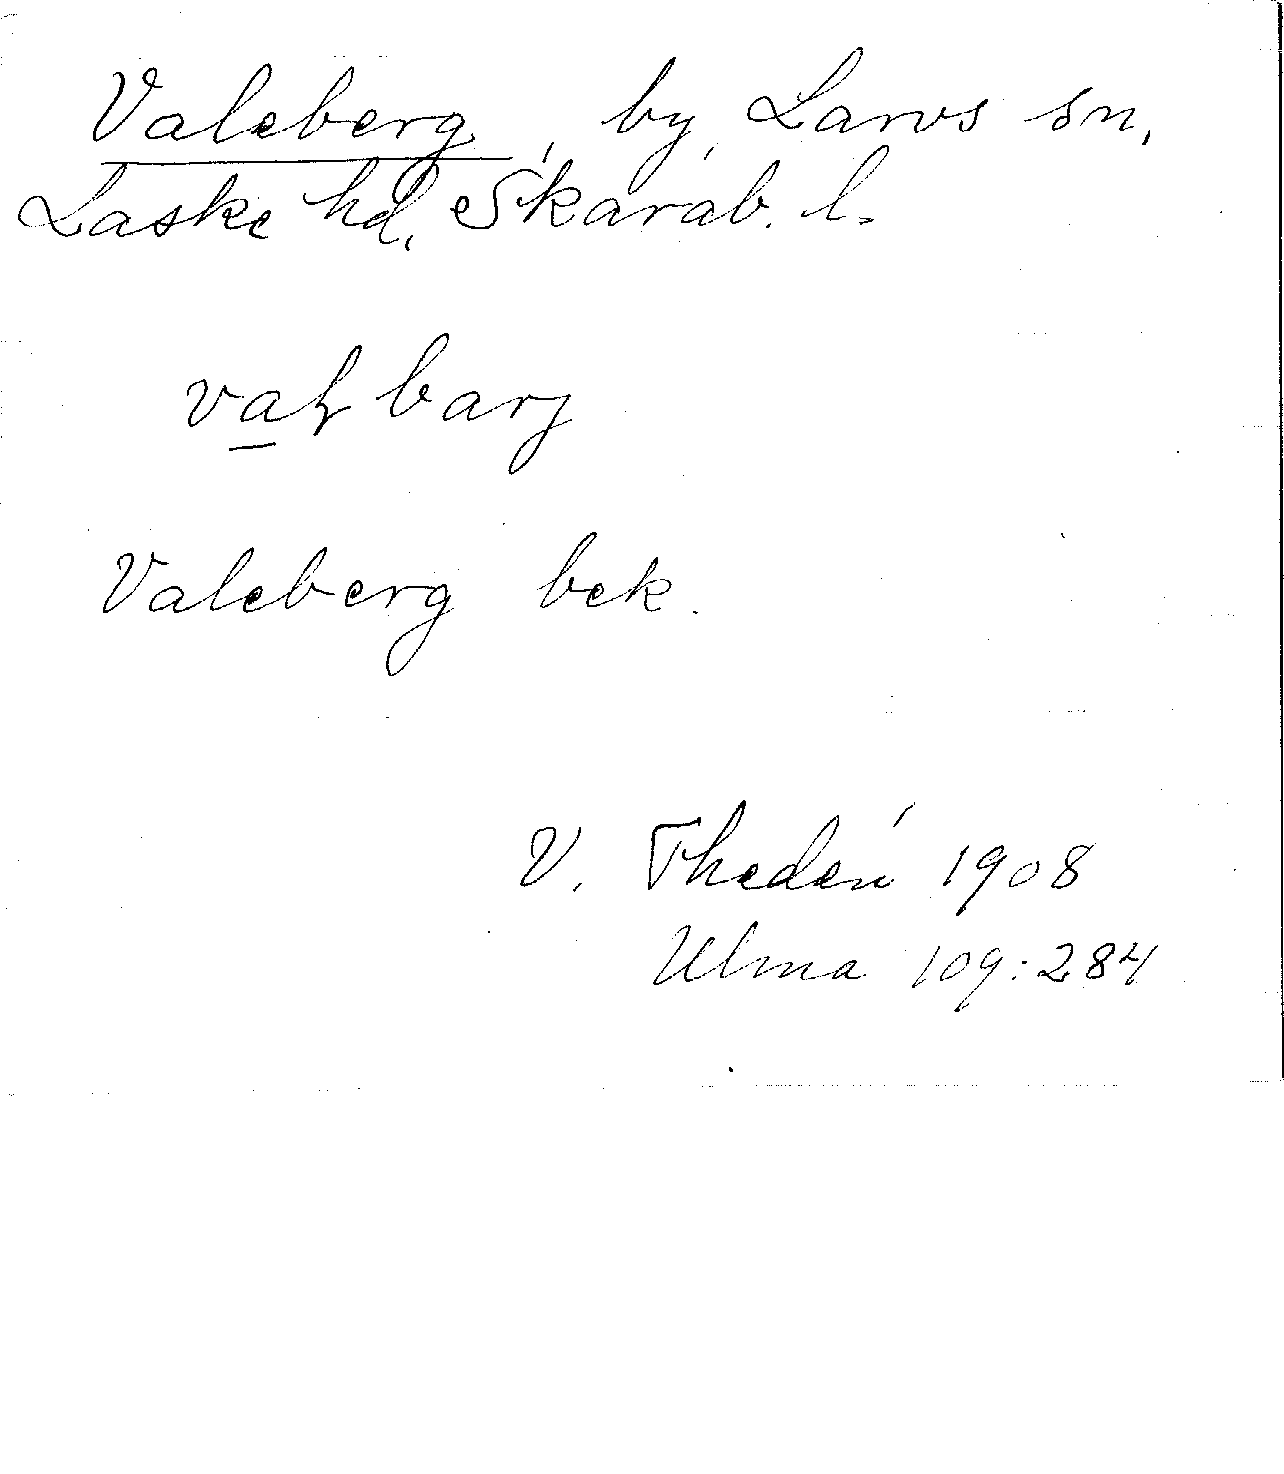 Valeberg, by, Larvs sn,
Laske hd, Skarab. l.
vaɫbarj
Valeberg bek.
V. Thedén 1908
Ulma 109:284